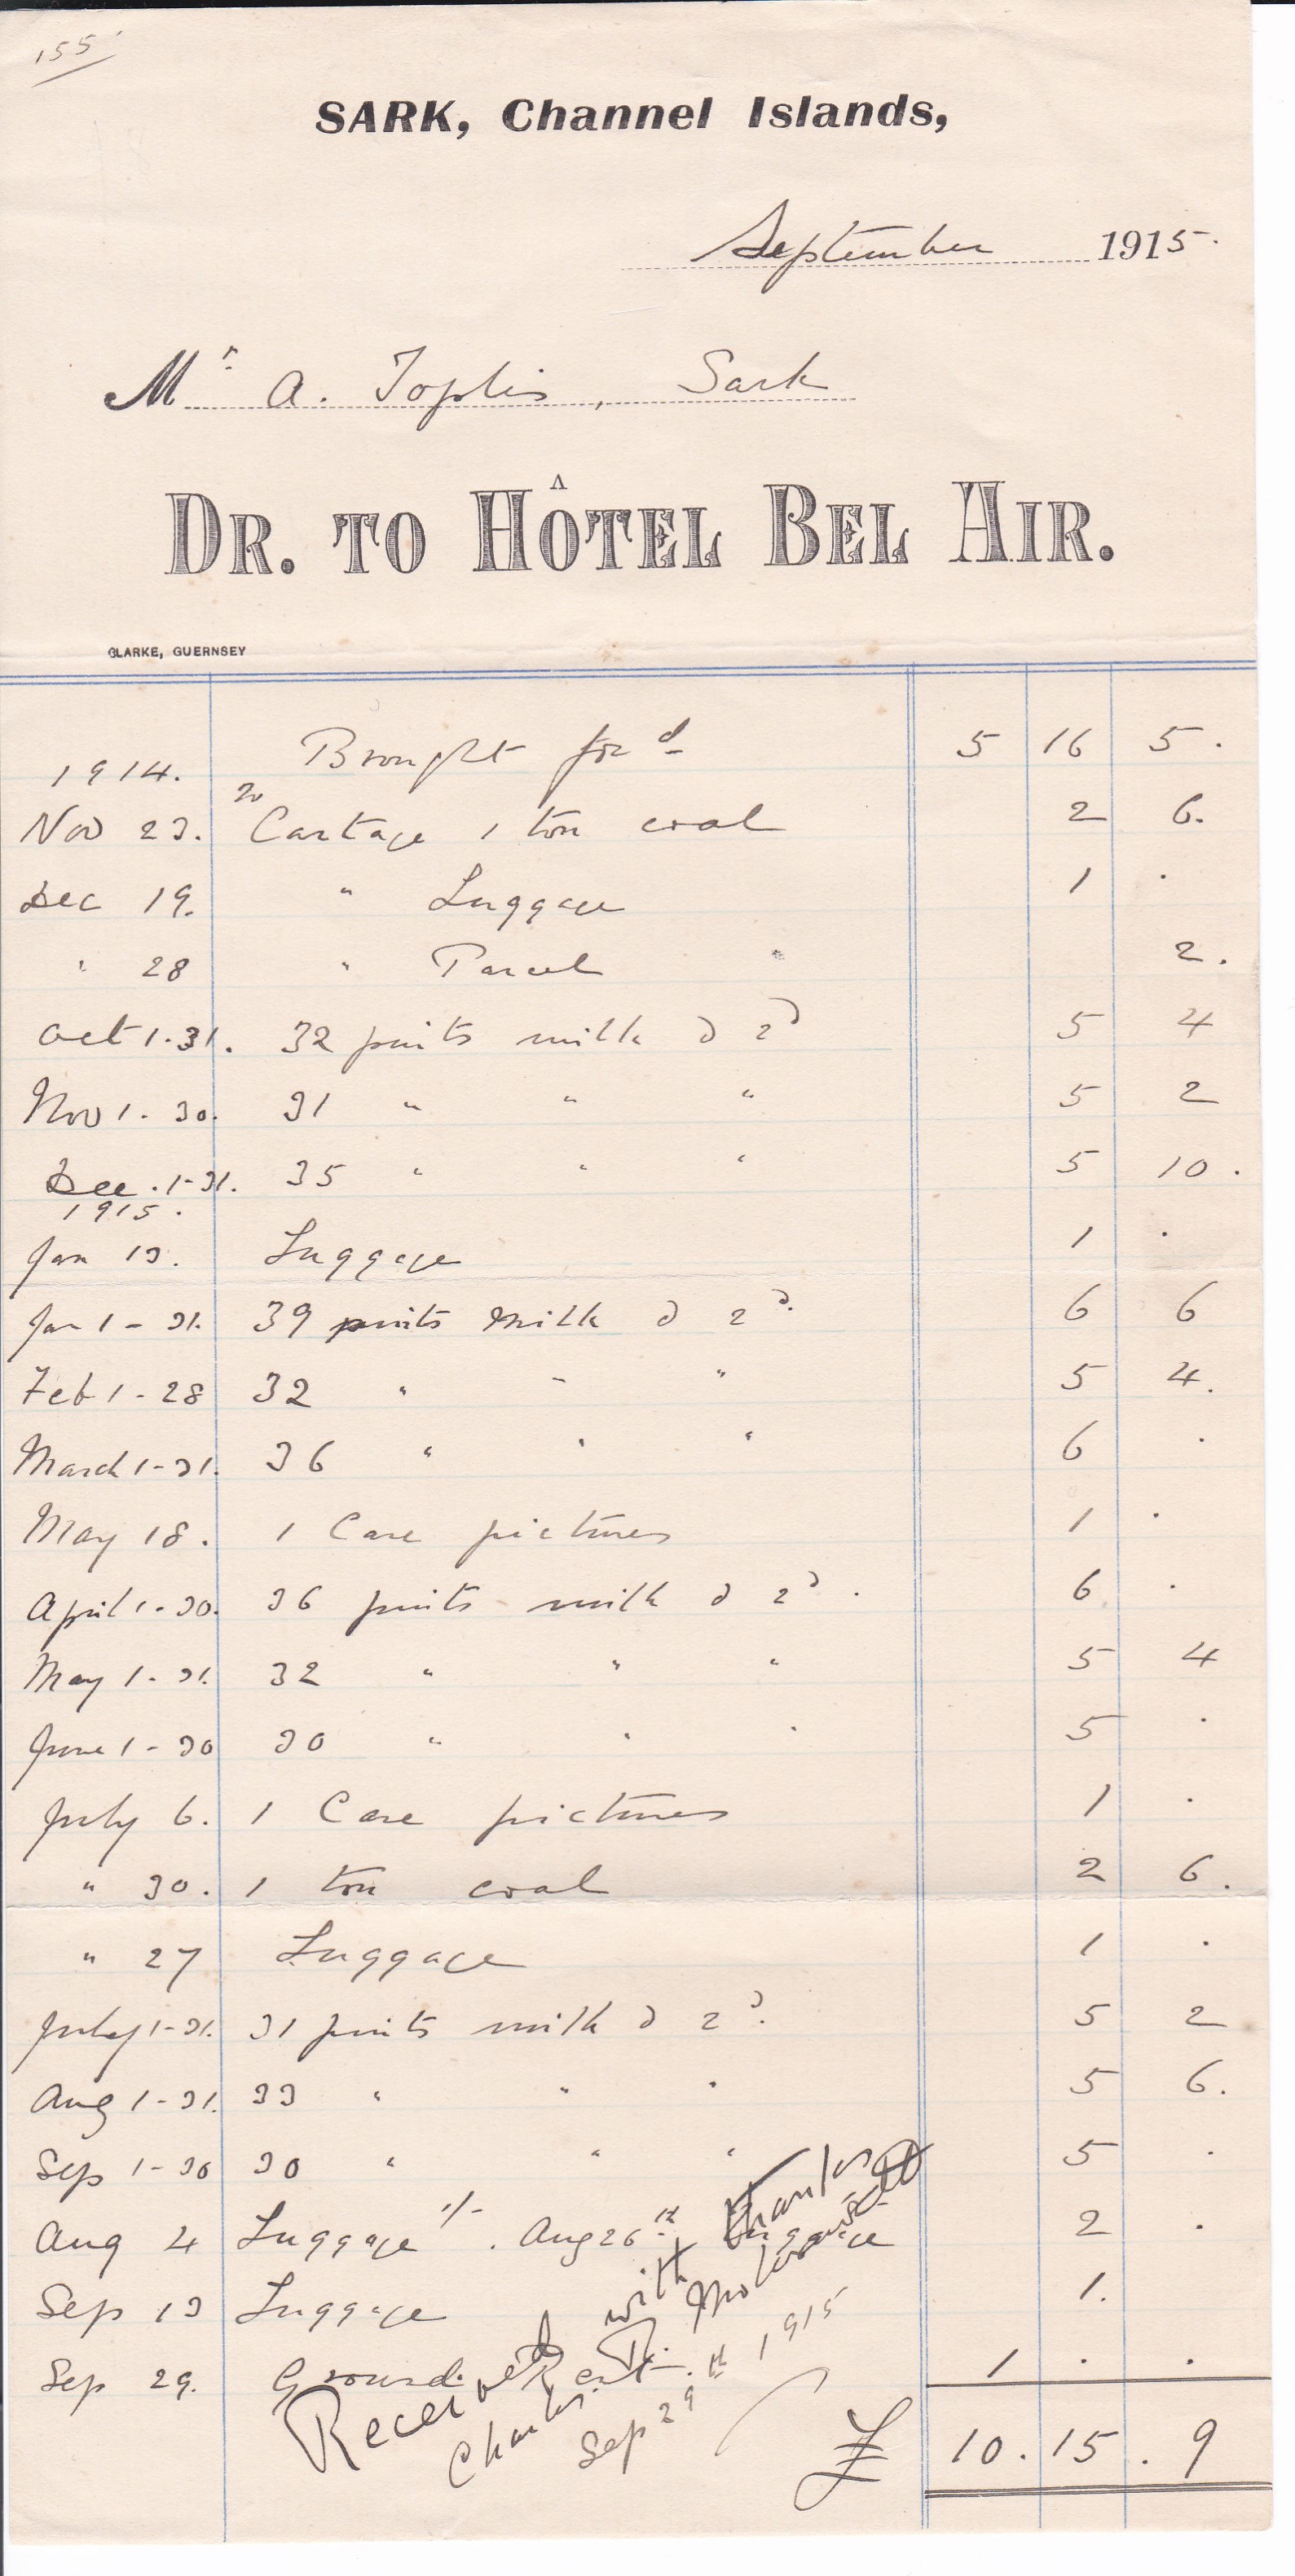 155
SARK, Channel Islands,
September 1915.
Mr. A. Toplis, Sark
DR. TO HÔTEL BEL AIR.
CLARKE, GUERNSEY
Brought ford 5 16 5.
1914.
Nov 23. To Cartage 1 ton coal 2 6.
Dec 19. " Luggage 1 .
" 28 " Parcel 2.
Oct 1-31. 32 pints milk @ 2d 5 4
Nov 1-30. 31 " " " 5 2
Dec. 1-31. 35 " " " 5 10.
1915.
Jan 13. Luggage 1 .
Jan 1-31. 39 pints milk @ 2d. 6 6
Feb 1-28 32 " " " 5 4.
March 1-31. 36 " " " 6 .
May 18. 1 Case pictures 1 .
April 1-30. 36 pints milk @ 2d. 6 .
May 1-31. 32 " " " 5 4
June 1-30 30 " " " 5 .
July 6. 1 Case pictures 1 .
" 30. 1 ton coal 2 6.
" 27 Luggage 1 .
July 1-31. 31 pints milk @ 2d. 5 2
Aug 1-31. 33 " " " 5 6.
Sep 1-30 30 " " " 5 .
Aug 4 Luggage 1/-. Aug 26th Luggage 2 .
Sep 13 Luggage 1.
Sep 29. Ground Rent. 1 . .
£ 10. 15. 9
Received with thanks
Charles R.
Sep 29th 1915